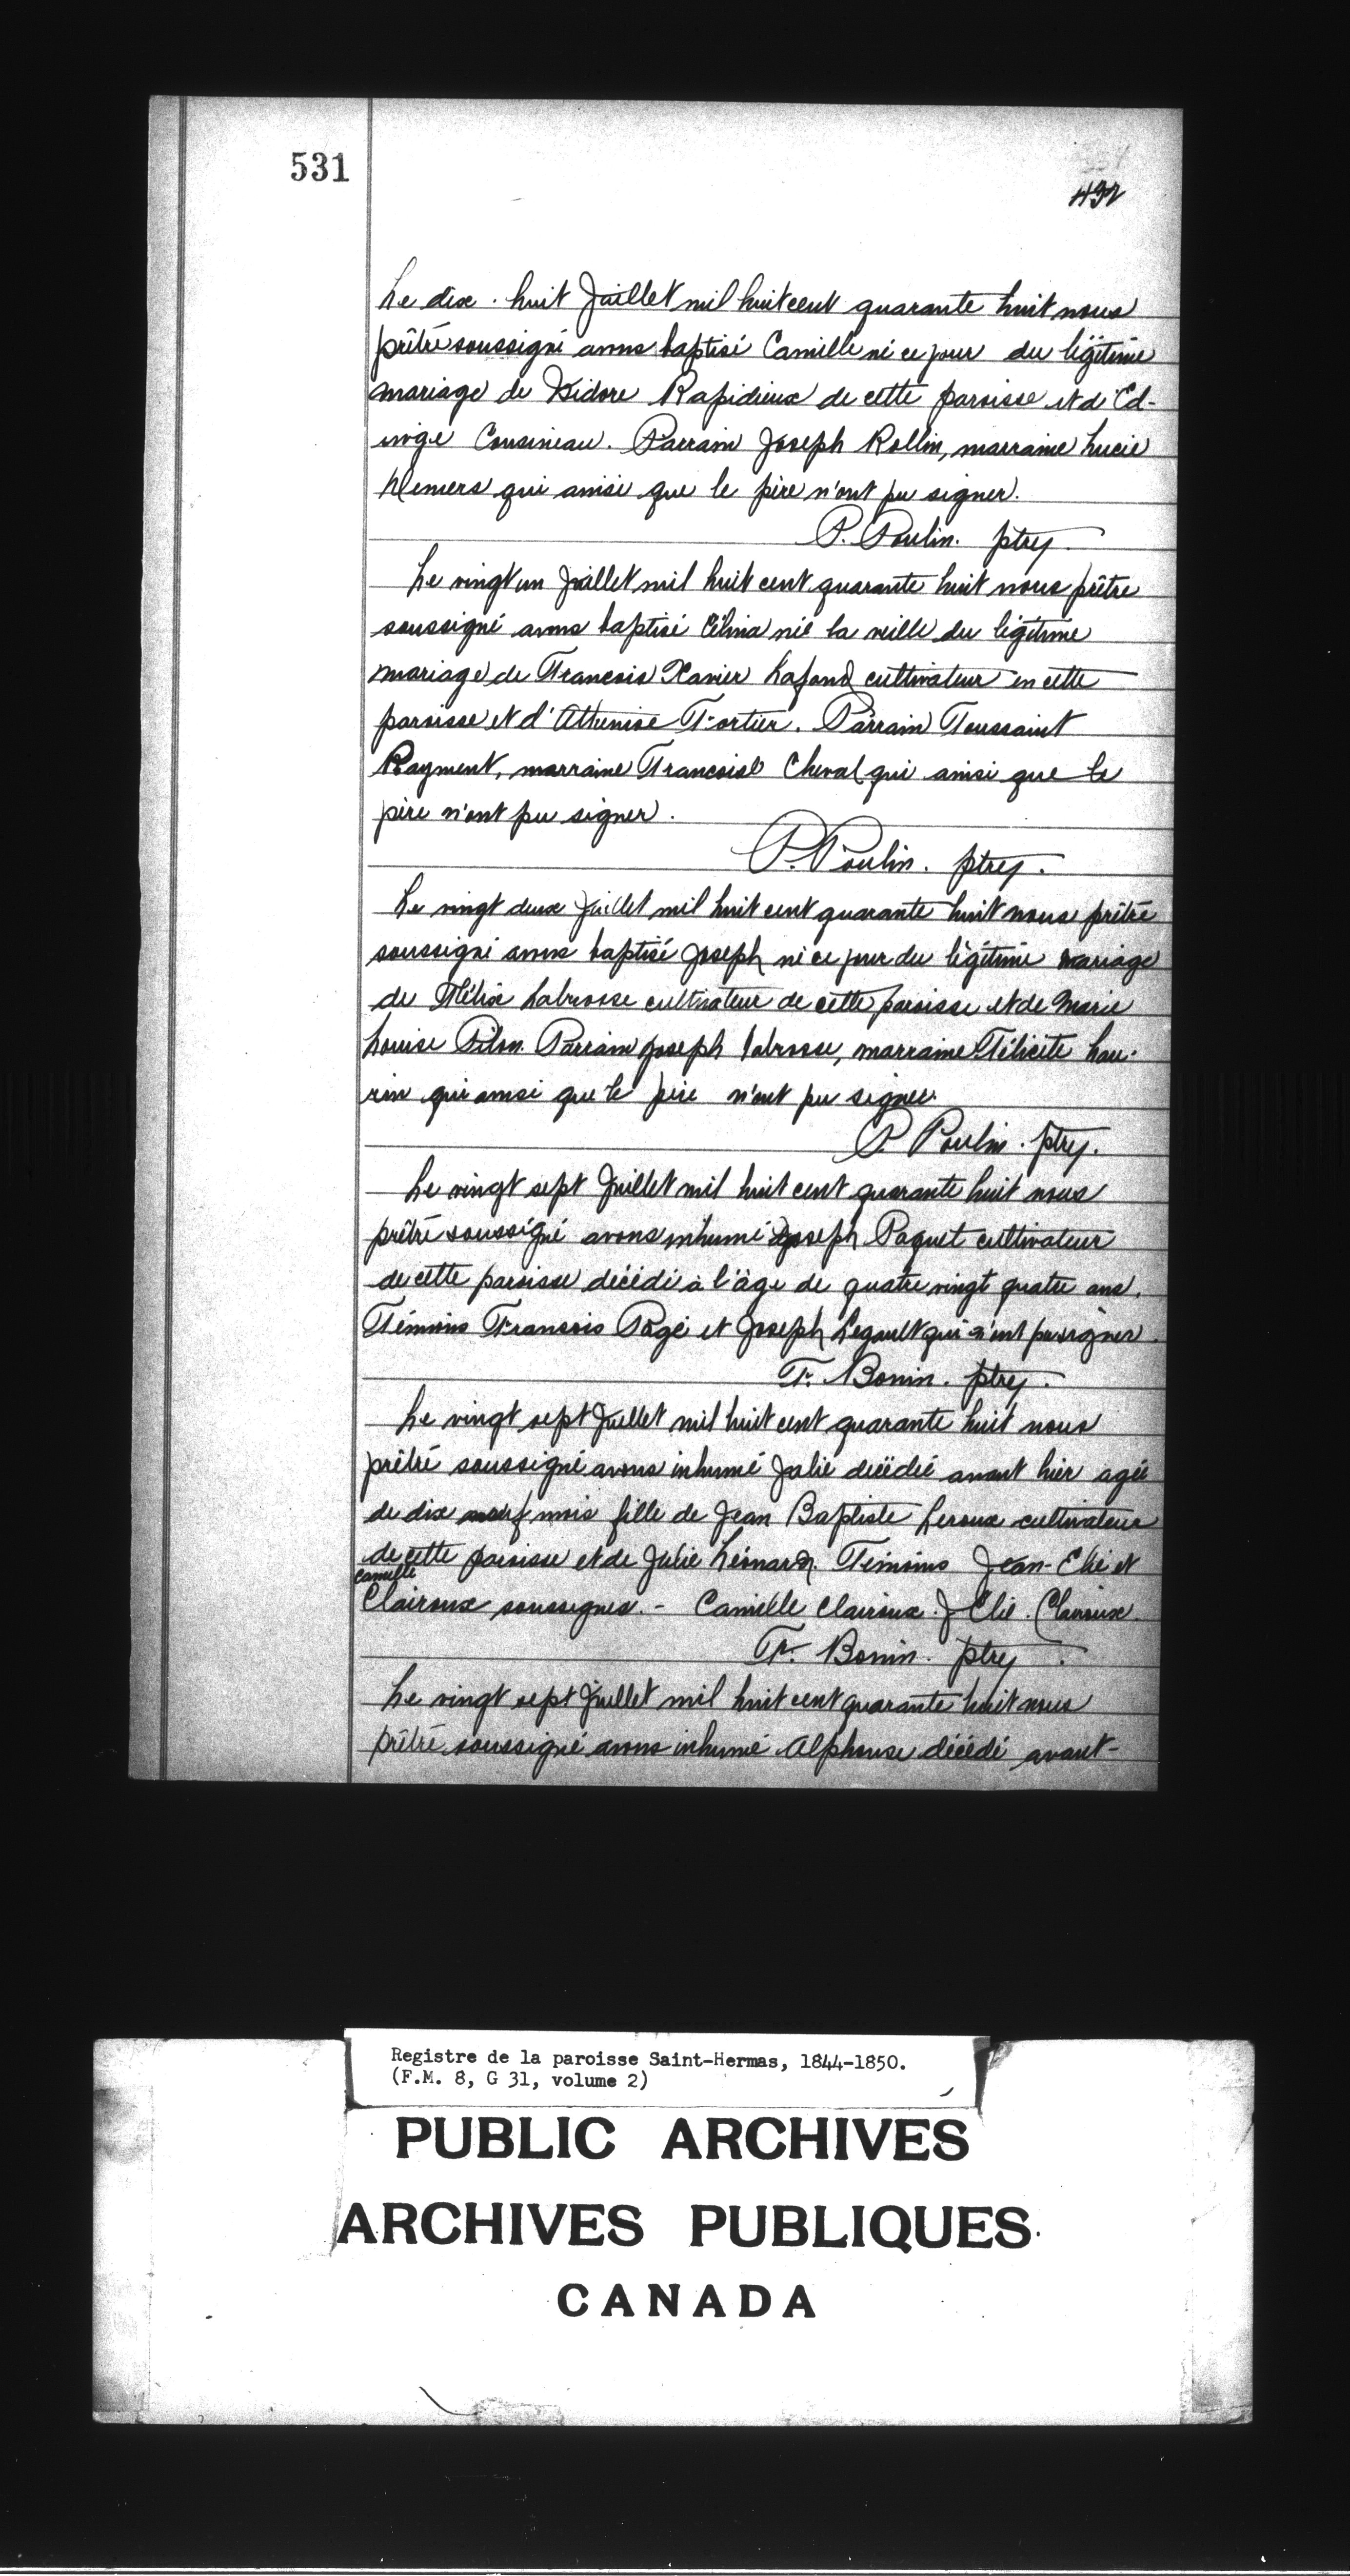 531
432
Le dix. huit Juillet mil huit cent quarante huit nous
prêtre soussigné avons baptisé Camille né ce jour du légitime
mariage de Isidore Rapidieux de cette paroisse et d'Ed-
wige Cousineau. Parrain Joseph Rollin, marraine Lucie
Demers qui ainsi que le père n'ont pu signer.
P. Poulin. ptre.
Le vingt un Juillet mil huit cent quarante huit nous prêtre
soussigné avons baptisé Célina née la veille du légitime
mariage de Francois Xavier Lafond cultivateur en cette
paroisse et d'Athenise Fortier. Parrain Toussaint
Rayment, marraine Francoise Cheval qui ainsi que le
père n'ont pu signer.
P. Poulin. ptre.
Le vingt deux Juillet mil huit cent quarante huit nous prêtre
soussigné avons baptisé Joseph né ce jour du légitime mariage
de Félix Labrosse cultivateur de cette paroisse et de Marie
Louise Pilon. Parrain Joseph Labrosse, marraine Félicité Lau-
rin qui ainsi que le père n'ont pu signer.
P. Poulin. ptre.
Le vingt sept Juillet mil huit cent quarante huit nous
prêtre soussigné avons inhumé Joseph Paquet cultivateur
de cette paroisse décédé à l'âge de quatre vingt quatre ans.
Témoins Francois Pagé et Joseph Legault qui n'ont pu signer.
F. Bonin. ptre.
Le vingt sept Juillet mil huit cent quarante huit nous
prêtre soussigné avons inhumé Julie décédée avant hier agée
de dix neuf mois fille de Jean Baptiste Leroux cultivateur
de cette paroisse et de Julie Léonard. Témoins Jean-Elie et
camille
Clairoux soussignes. - Camille Clairoux. J Elie. Clairoux.
F. Bonin. ptre.
Le vingt sept Juillet mil huit cent quarante huit nous
prêtre soussigné avons inhumé Alphonse décédé avant-
Registre de la paroisse Saint-Hermas, 1844-1850.
(F.M. 8, G 31, volume 2)
PUBLIC ARCHIVES
ARCHIVES PUBLIQUES
CANADA